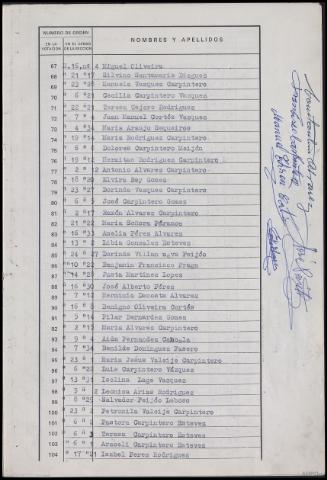 NUMERO DE ORDEN
NOMBRES Y APELLIDOS
EN LA VOTACION
67 H.15,nº 4 Miguel Oliveira
68 " 21 "17 Silvino Santamaria Diaguez
69 " 23 "28 Manuela Vazquez Carpintero
70 " 6 "21 Cecilia Carpintero Vazquez
71 " 22 "21 Teresa Tejero Rodriguez
72 " 7 " 4 Juan Manuel Cortés Vazquez
73 " 4 "34 Maria Araujo Sequeiros
74 " 19 "14 Maria Rodriguez Carpintero
75 " 6 " 8 Dolores Carpintero Meijón
76 " 19 "12 Hermitas Rodriguez Carpintero
77 " 2 "12 Antonio Alvarez Carpintero
78 " 18 "20 Elvira Rey Gomez
79 " 23 "27 Dorinda Vazquez Carpintero
80 " 6 " 5 José Carpintero Gomez
81 " 2 "17 Ramón Alvarez Carpintero
82 " 21 "22 Maria Señora Pérance
83 " 16 "33 Amelia Pérez Alvarez
84 " 13 " 2 Libia Gonzalez Esteves
85 " 24 "27 Dorinda Villan Feijóo
86 " 10 "22 Benjamin Francisco Fraga
87 " 14 "28 Justa Martinez Lopez
88 " 16 "30 José Alberto Pérez
89 " 7 "12 Herminio Dacosta Alvarez
90 " 16 " 8 Benigno Oliveira Cortés
91 " 5 "14 Pilar Bernardez Gomez
92 " 2 "15 Maria Alvarez Carpintero
93 " 9 " 4 Aida Fernandez
94 " 7 "34 Benilde Dominguez
95 " 23 " 1 Maria Jesus Valeije Carpintero
96 " 6 "22 Luis Carpintero Vázquez
97 " 13 "31 Isolina Lage Vazquez
98 " 3 " 2 Leonisa Arias Rodriguez
99 " 8 "25 Salvador Feijóo
100 " 23 " 2 Petronila Valeije Carpintero
101 " 6 " 2 Pastora Carpintero Esteves
102 " 6 " 3 Teresa Carpintero Esteves
103 " 6 " 1 Araceli Carpintero Esteves
104 " 17 "21 Isabel Perez Rodriguez